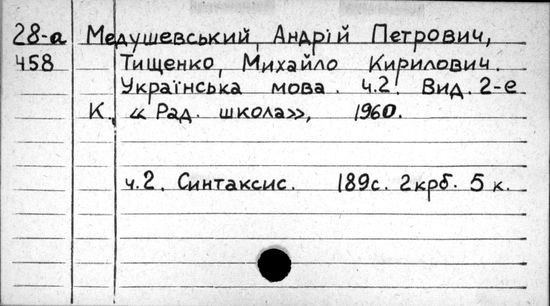 28-а Медушевський, Андрій Петрович,
458 Тищенко, Михайло Кирилович.
Українська мова. ч.2. Вид. 2-е
К. «Рад. школа», 1960.
ч.2. Синтаксис. 189с. 2крб. 5 к.